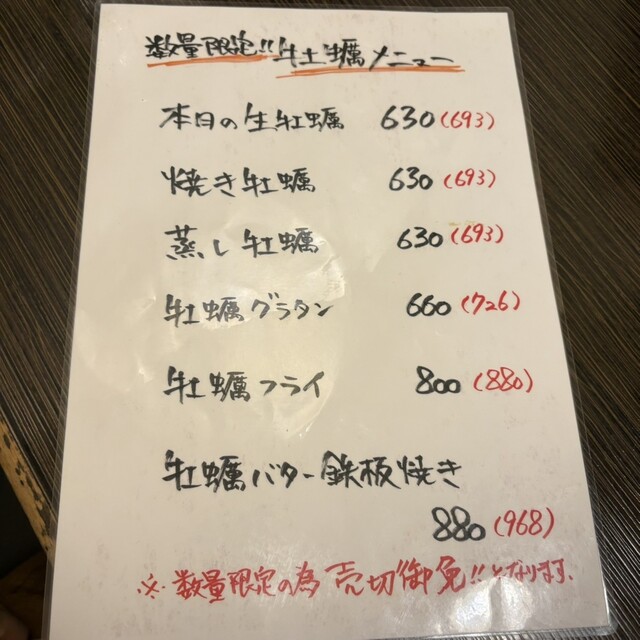 数量限定!! 牡蠣メニュー
本日の生牡蠣 630(693)
焼き牡蠣 630(693)
蒸し牡蠣 630(693)
牡蠣グラタン 660(726)
牡蠣フライ 800(880)
牡蠣バター鉄板焼き
880(968)
※数量限定の為売切御免!!となります.